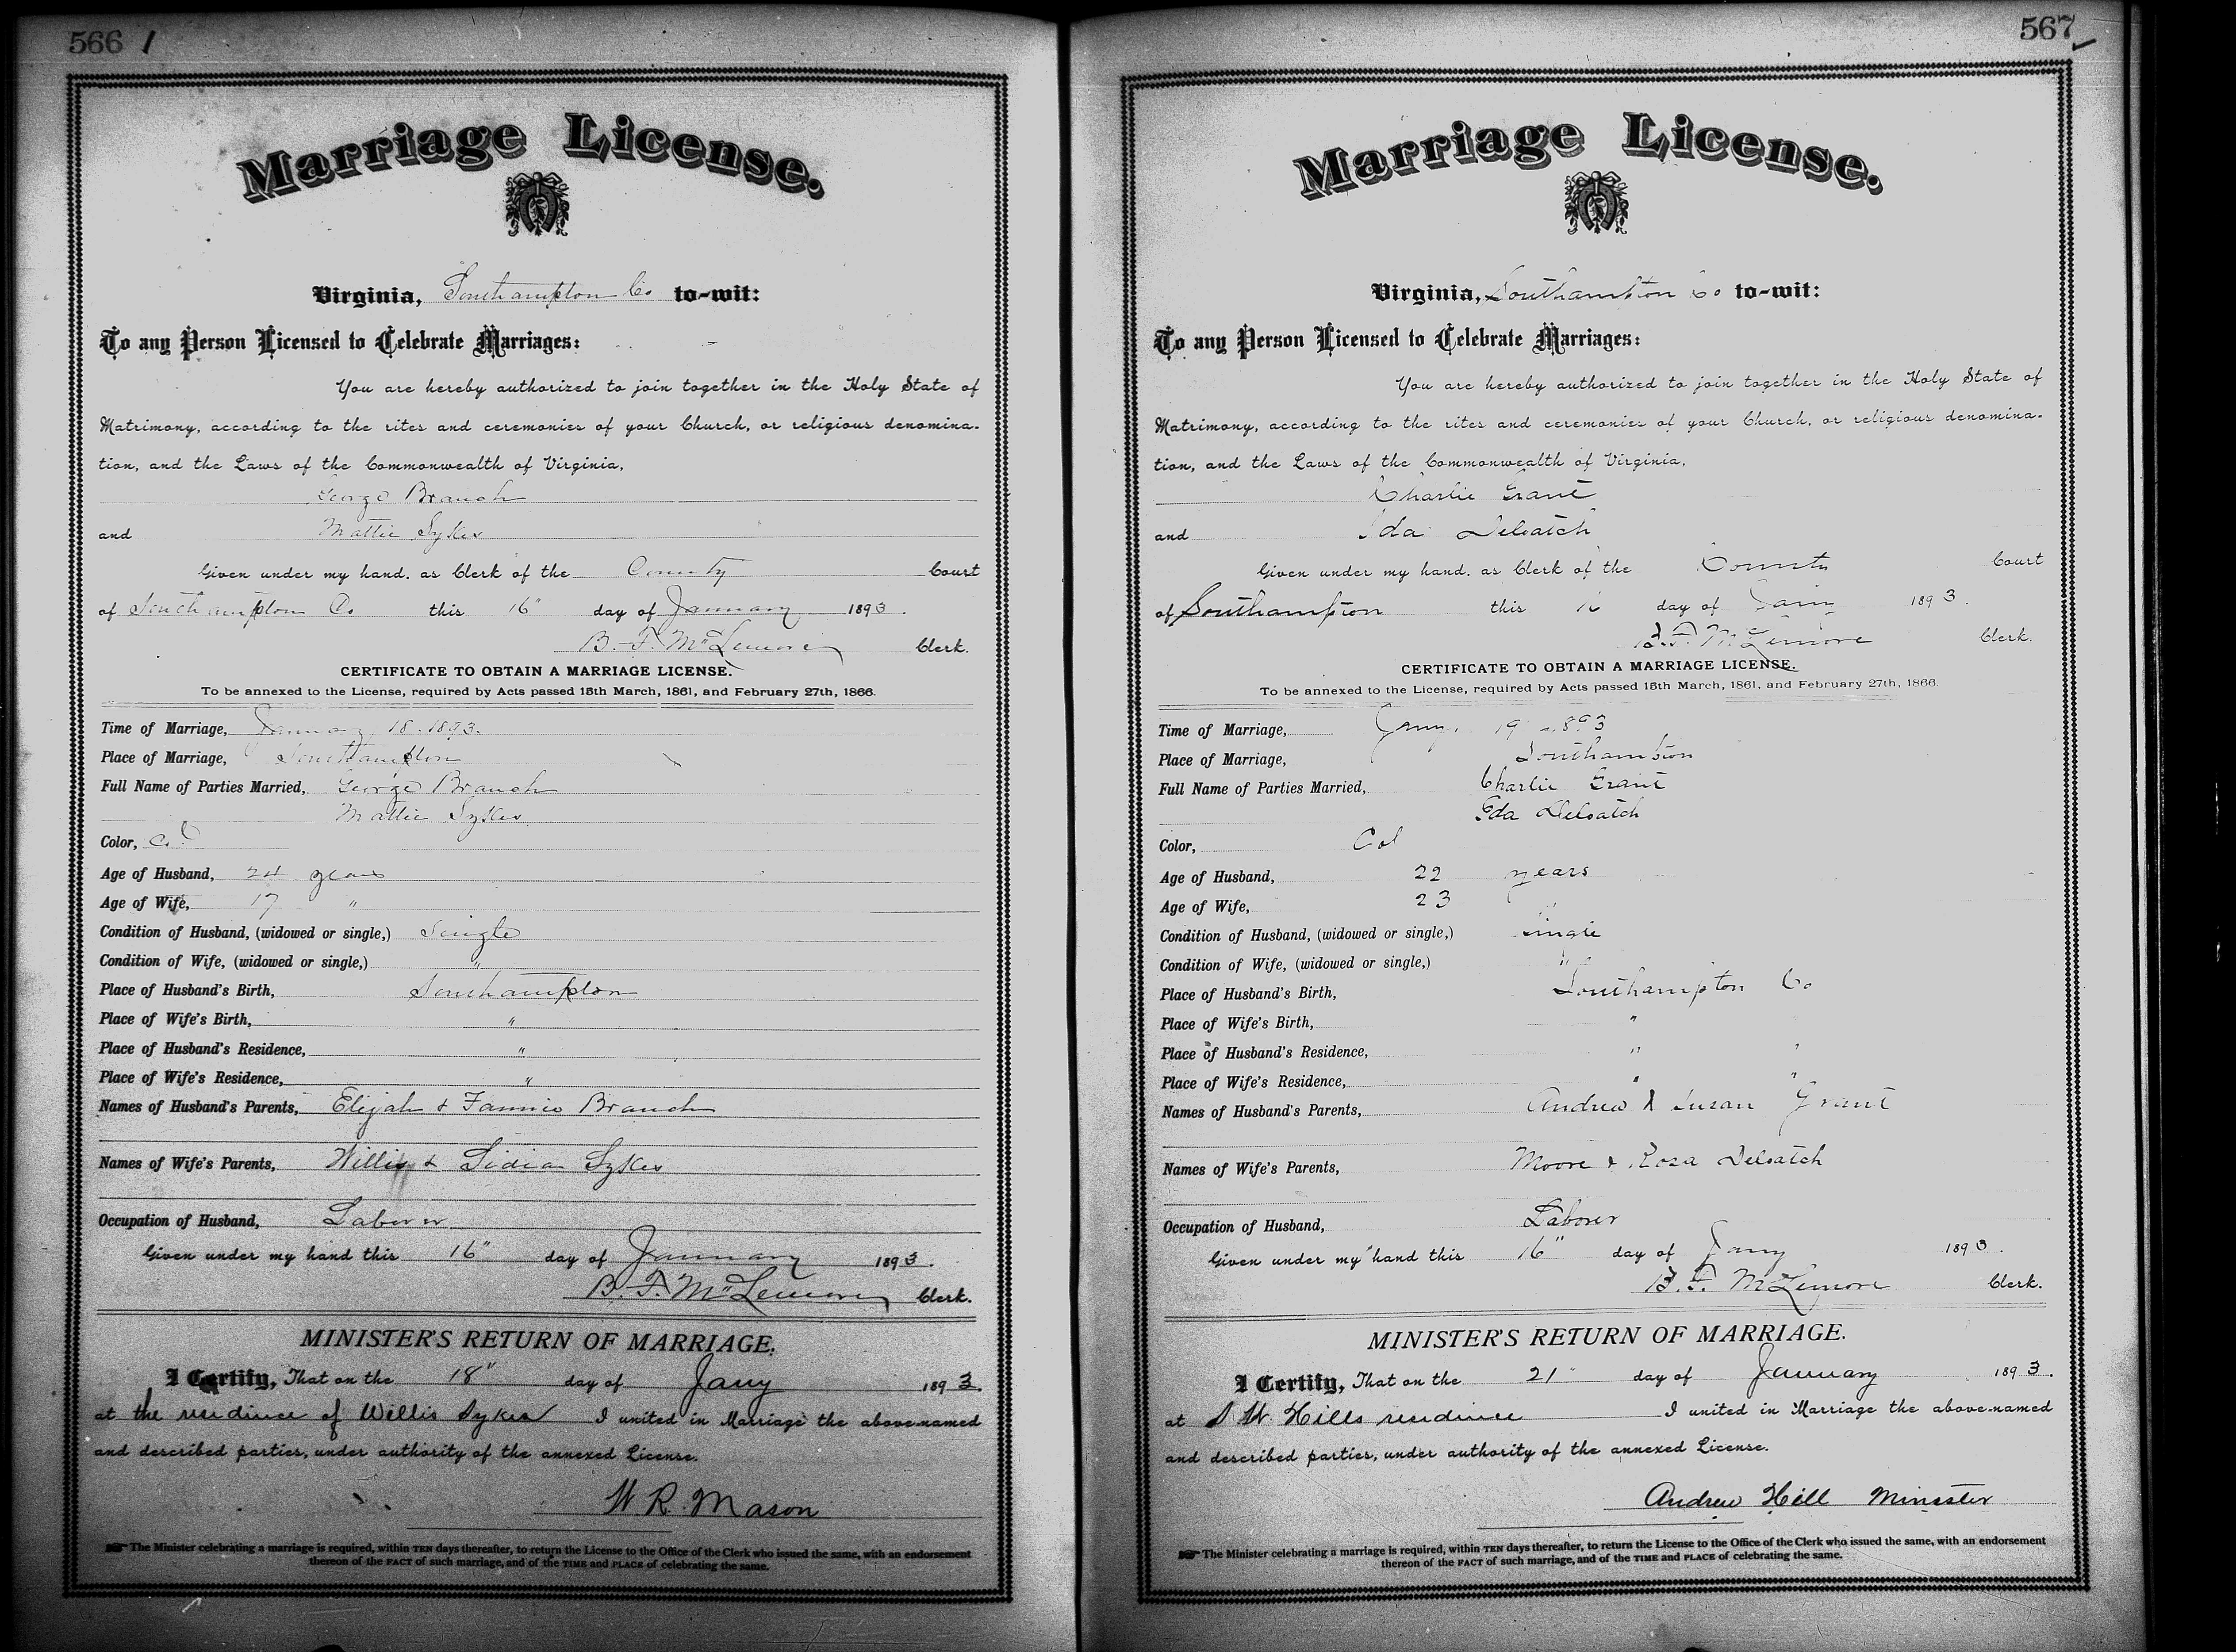 566
Marriage License.
Virginia, Southampton Co to-wit:
To any Person Licensed to Celebrate Marriages:
You are hereby authorized to join together in the Holy State of
Matrimony, according to the rites and ceremonies of your Church, or religious denomina-
tion, and the Laws of the Commonwealth of Virginia,
George Branch
and Mattie Sykes
Given under my hand, as Clerk of the County Court
of Southampton Co this 16" day of January 1893.
B. F. McLemore Clerk.
CERTIFICATE TO OBTAIN A MARRIAGE LICENSE.
To be annexed to the License, required by Acts passed 15th March, 1861, and February 27th, 1866.
Time of Marriage, January 18. 1893.
Place of Marriage, Southampton
Full Name of Parties Married, George Branch
Mattie Sykes
Color,
Age of Husband, 24 years
Age of Wife, 17 "
Condition of Husband, (widowed or single,) Single
Condition of Wife, (widowed or single,) "
Place of Husband's Birth, Southampton
Place of Wife's Birth, "
Place of Husband's Residence, "
Place of Wife's Residence, "
Names of Husband's Parents, Elijah & Fannie Branch
Names of Wife's Parents, Willis & Lidia Sykes
Occupation of Husband, Laborer
Given under my hand this 16" day of January 1893.
B. F. McLemore Clerk.
MINISTER'S RETURN OF MARRIAGE.
I Certify, That on the 18" day of Jany 1893.
at the residence of Willis Sykes I united in Marriage the above-named
and described parties, under authority of the annexed License.
W. R. Mason
The Minister celebrating a marriage is required, within TEN days thereafter, to return the License to the Office of the Clerk who issued the same, with an endorsement
thereon of the FACT of such marriage, and of the TIME and PLACE of celebrating the same.
567
Marriage License.
Virginia, Southampton Co to-wit:
To any Person Licensed to Celebrate Marriages:
You are hereby authorized to join together in the Holy State of
Matrimony, according to the rites and ceremonies of your Church, or religious denomina-
tion, and the Laws of the Commonwealth of Virginia,
Charlie Grant
and Ida Deloatch
Given under my hand, as Clerk of the County Court
of Southampton this 16 day of Jany 1893.
B. F. McLemore Clerk.
CERTIFICATE TO OBTAIN A MARRIAGE LICENSE.
To be annexed to the License, required by Acts passed 15th March, 1861, and February 27th, 1866.
Time of Marriage, Jany. 19 1893
Place of Marriage, Southampton
Full Name of Parties Married, Charlie Grant
Ida Deloatch
Color, Col
Age of Husband, 22 years
Age of Wife, 23
Condition of Husband, (widowed or single,) Single
Condition of Wife, (widowed or single,) "
Place of Husband's Birth, Southampton Co
Place of Wife's Birth, "
Place of Husband's Residence, " "
Place of Wife's Residence, " "
Names of Husband's Parents, Andrew & Susan Grant
Names of Wife's Parents, Moore & Rosa Deloatch
Occupation of Husband, Laborer
Given under my hand this 16" day of Jany 1893.
B. F. McLemore Clerk.
MINISTER'S RETURN OF MARRIAGE.
I Certify, That on the 21" day of January 1893.
at W Hills residence I united in Marriage the above-named
and described parties, under authority of the annexed License.
Andrew Hill Minister
The Minister celebrating a marriage is required, within TEN days thereafter, to return the License to the Office of the Clerk who issued the same, with an endorsement
thereon of the FACT of such marriage, and of the TIME and PLACE of celebrating the same.